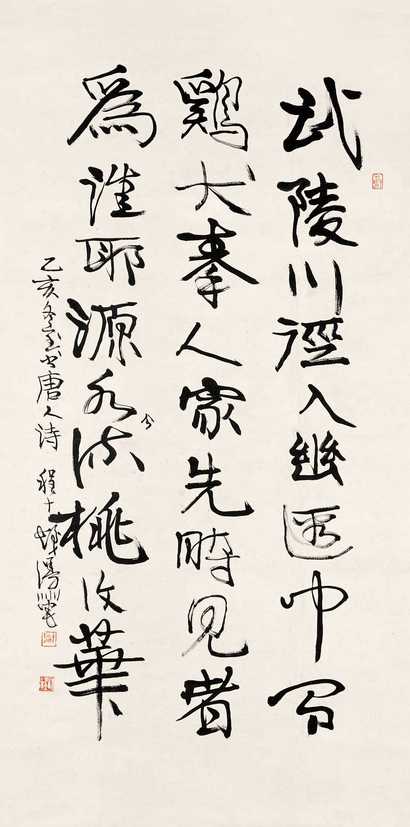 武陵川徑入幽遐中有
鷄犬秦人家先時見者
爲誰耶源水今流桃復華
乙亥冬至書唐人詩 程十髮漫筆